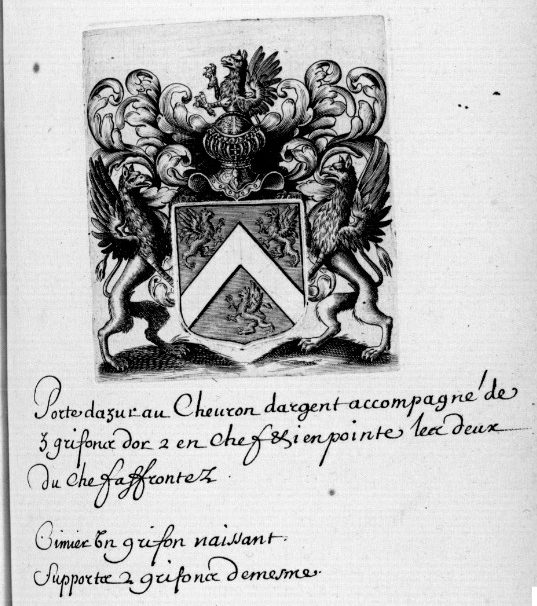 Porte dazur au Cheuron dargent accompagné de
3 grifons dor 2 en chef & i en pointe les deux
du chef affrontez
Cimier Vn grifon naissant.
Supportz 2 grifons demesme.